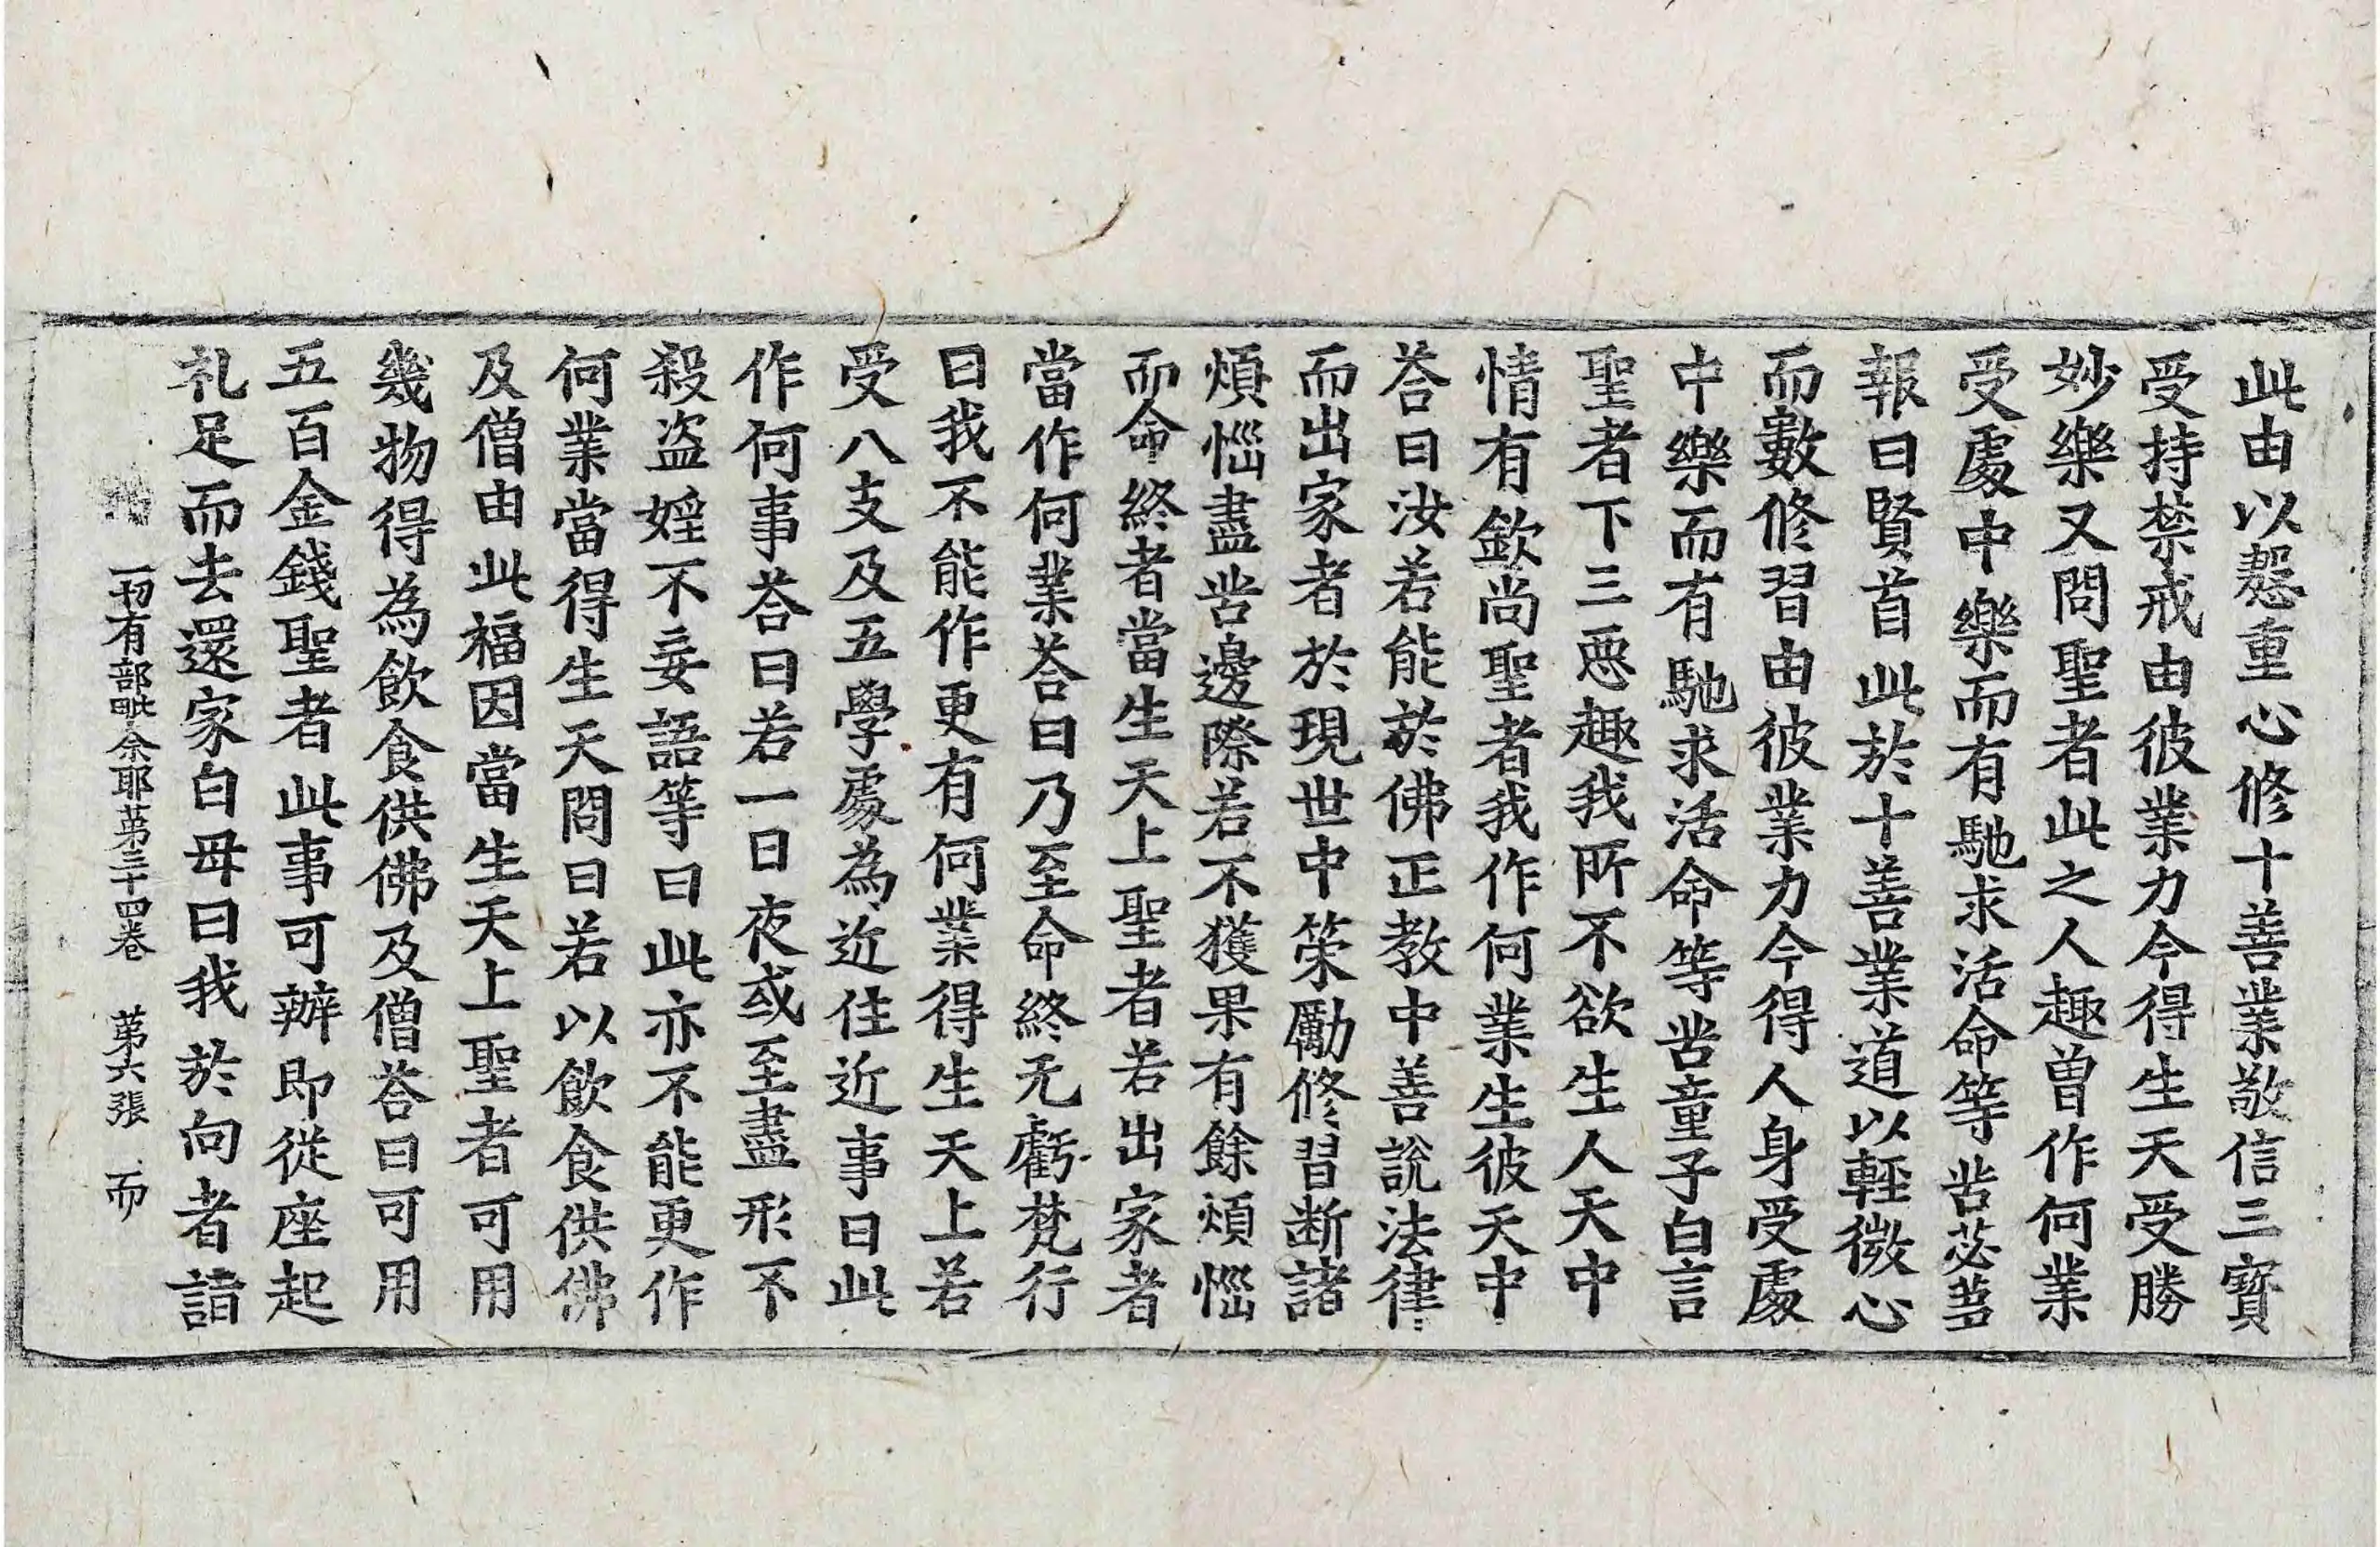 此由以慇重心修十善業敬信三寶
受持禁戒由彼業力今得生天受勝
妙樂又問聖者此之人趣曾作何業
受處中樂而有馳求活命等苦苾芻
報曰賢首此於十善業道以輕微心
而數修習由彼業力今得人身受處
中樂而有馳求活命等苦童子白言
聖者下三惡趣我所不欲生人天中
情有欽尚聖者我作何業生彼天中
荅曰汝若能於佛正教中善說法律
而出家者於現世中策勵修習斷諸
煩惱盡苦邊際若不獲果有餘煩惱
而命終者當生天上聖者若出家者
當作何業荅曰乃至命終无虧梵行
曰我不能作更有何業得生天上若
受八支及五學處為近住近事曰此
作何事荅曰若一日夜或至盡形不
殺盜婬不妄語等曰此亦不能更作
何業當得生天問曰若以飲食供佛
及僧由此福因當生天上聖者可用
幾物得為飲食供佛及僧荅曰可用
五百金錢聖者此事可辦即從座起
礼足而去還家白母曰我於向者詣
一切有部毗奈耶第三十四卷　第六張　而